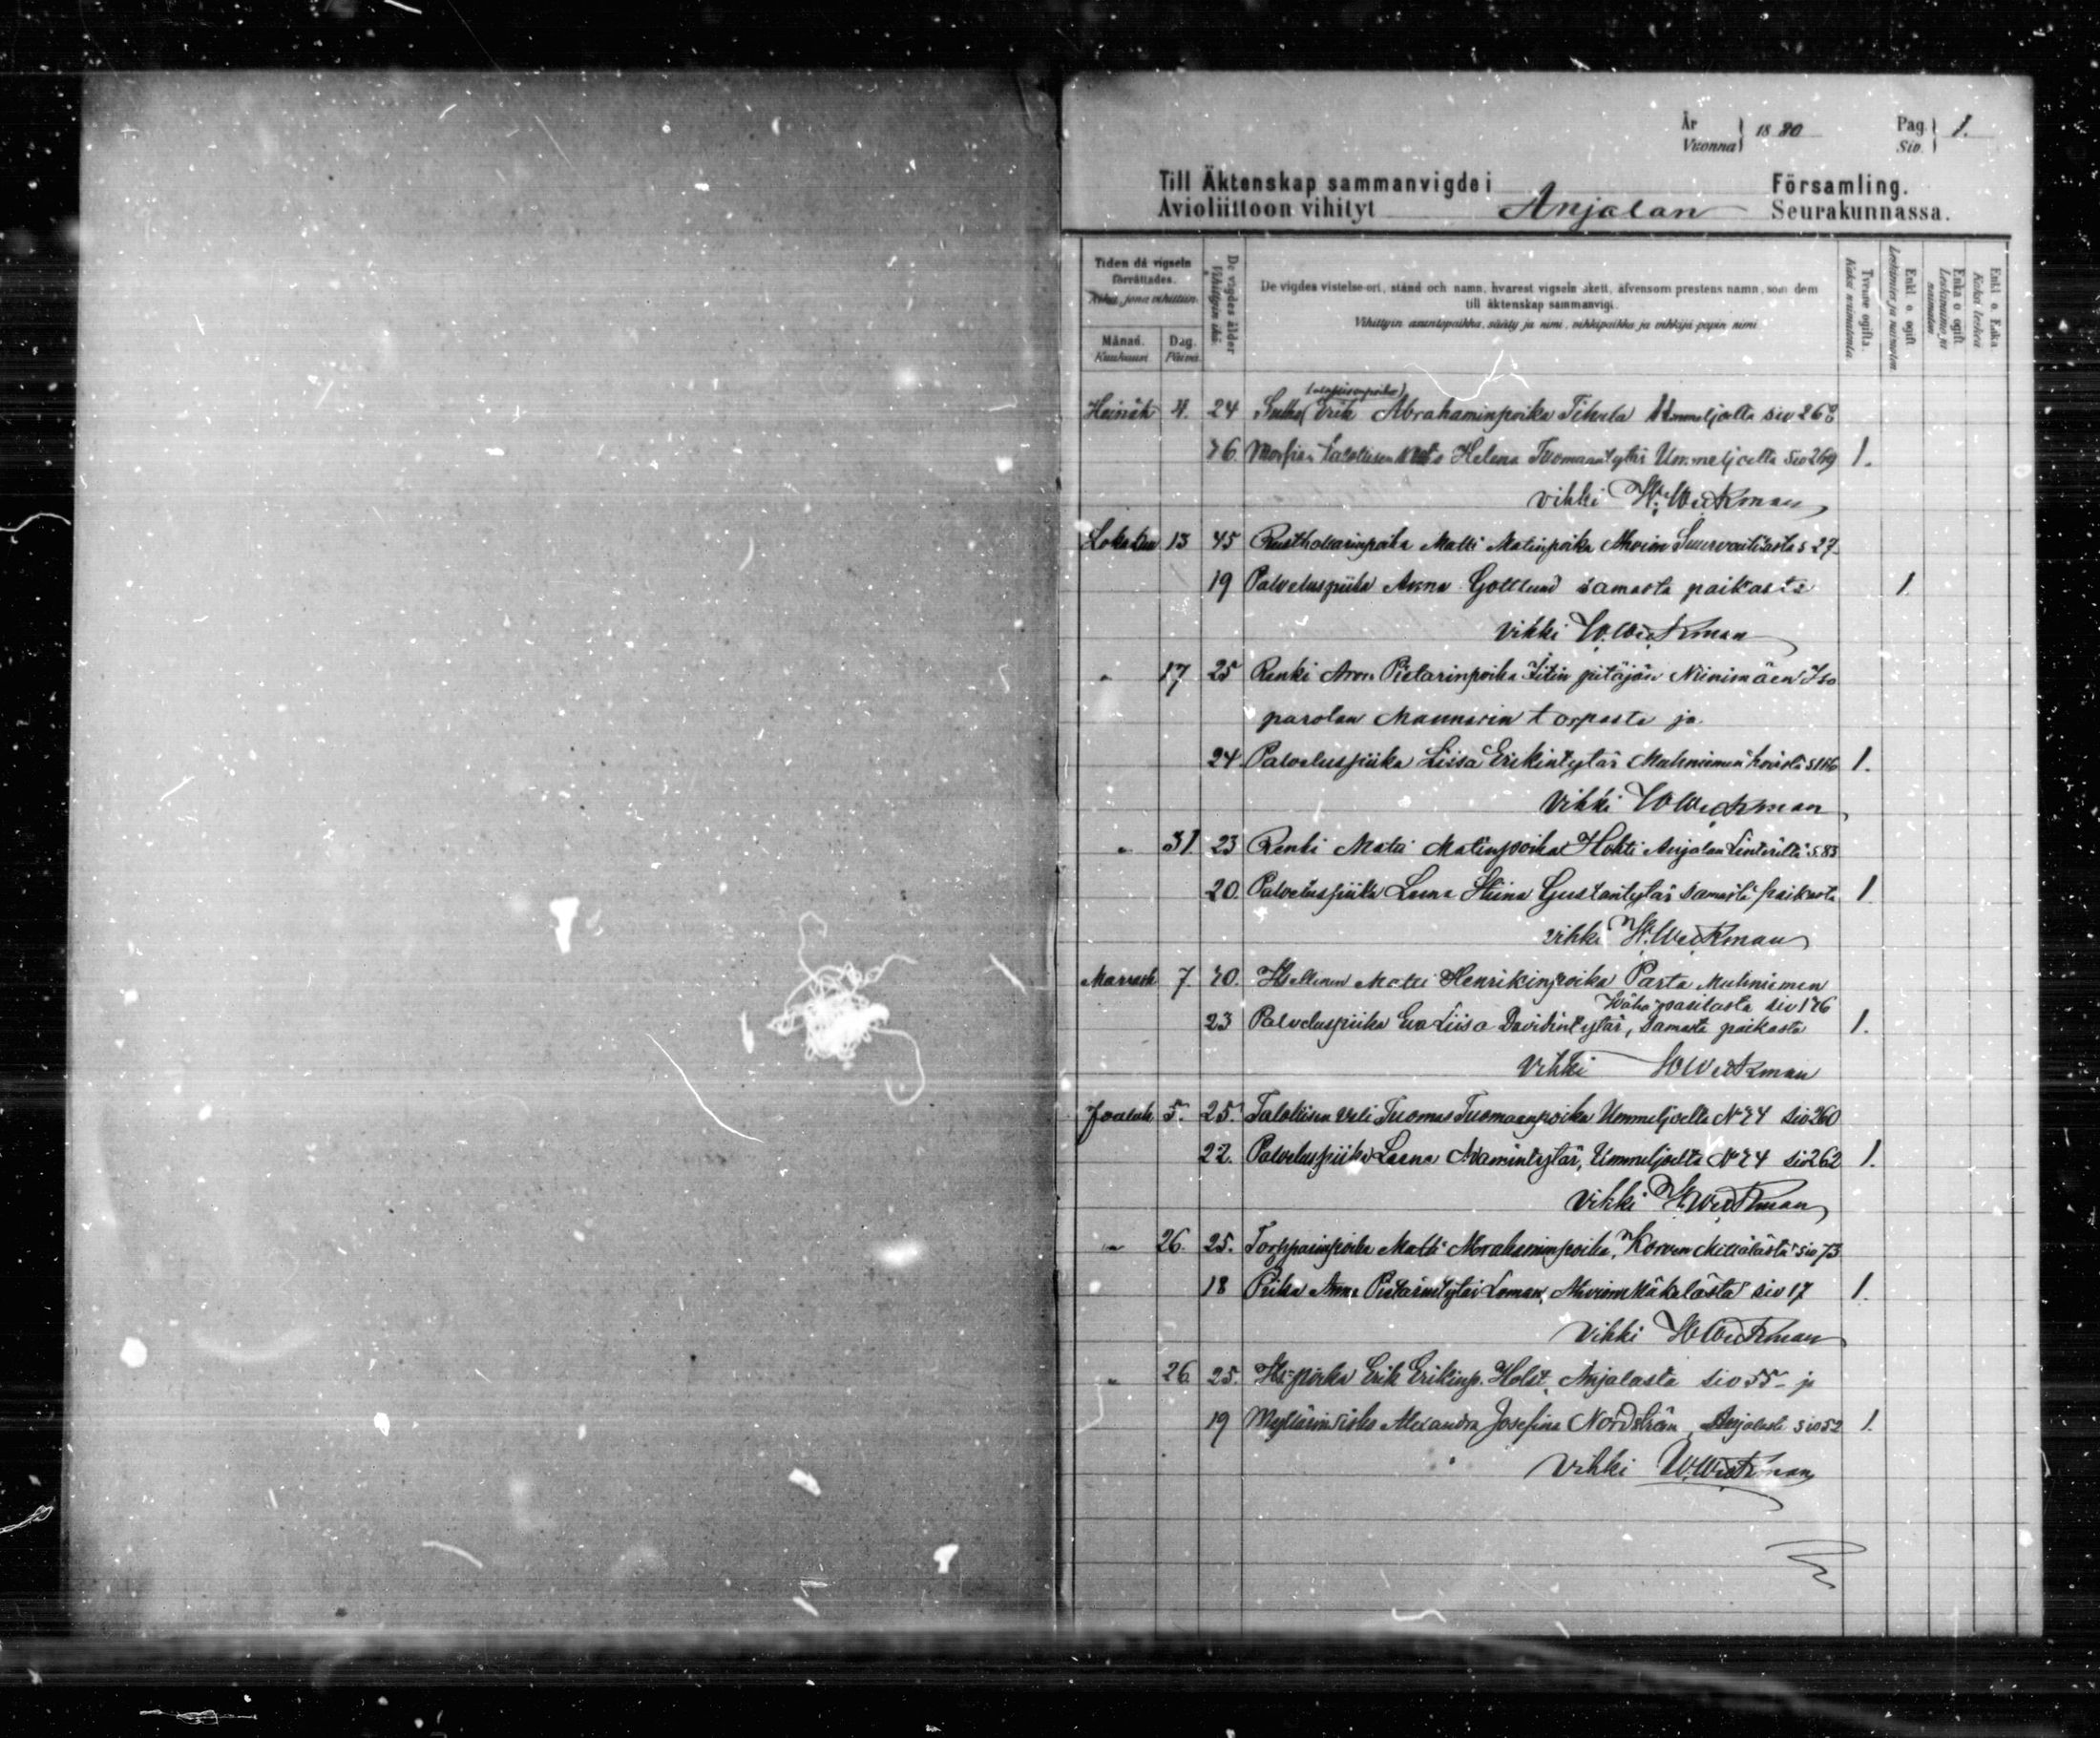 År Vuonna } 1880 Pag. Siv. } 1.
Till Äktenskap sammanvigde i Församling.
Avioliittoon vihityt Anjalan Seurakunnassa.
Tiden då vigseln
förrättades.
Aika, jona vihittiin.
Månad.
Kuukausi.
Dag.
Päivä.
De vigdes ålder
Vihittyin ikä.
De vigdes vistelse-ort, stånd och namn, hvarest vigseln skett, äfvensom prestens namn, som dem
till äktenskap sammanvigt.
Vihittyin asuntopaikka, sääty ja nimi, vihkipaikka ja vihkijä-papin nimi
Tvenne ogifta.
Kaksi naimatonta.
Enkl. o. ogift
Leskimies ja naimaton.
Enka o. ogift
Leskivaimo ja
naimaton
Enkl. o. Enka
Kaksi leskeä
Heinäk 4. 24 Erik Abrahaminpoika Tihula Ummeljoelta siv 262
26 Helena Tuomaantytär Ummeljoelta siv 269 1.
vihki W. Weckman
Lokakuu 13 45 Rusthollarinpoika Matti Matinpoika Ahvion s 27
19 Palveluspiika Anna Gottlund samasta paikasta 1
vihki W. Weckman
" 17 25 Renki Aron Pietarinpoika Iitin pitäjän Niinimäen Iso
parolan Mannarin torpasta ja
24. Palveluspiika Liisa Erikintytär Muhniemen s 166 1.
vihki W Weckman
" 31. 23 Renki Matti Matinpoika Hohti Anjalan s. 83
20. Palveluspiika Leena Stiina Gustantytär samasta paikasta 1
vihki W. Weckman
Marrask 7. 20. Itsellinen Matti Henrikinpoika Parta Muhniemen
Wähäpasilasta siv 176
23 Palveluspiika Eva Liisa Davidintytär, samasta paikasta 1.
vihki W Weckman
Jouluk 5. 25. Talollisen veli Tuomas Tuomaanpoika Ummeljoelta No 24 siv 260
22. Palveluspiika Leena Adamintytär, Ummeljoelta No 24 siv 262 1.
vihki W. Weckman
" 26. 25. Torpparinpoika Matti Abrahaminpoika, Korven siv 73
18 Piika Anna Pietarintytär Loman, Ahvion Mäkelästä siv 17 1.
vihki W Weckman
" 26. 25. Its. poika Erik Erikinp. Holst, Anjalasta siv 55 ja
19 Myllärin sisko Alexandra Josefina Nordström, Anjalasta siv 52 1.
vihki W. Weckman